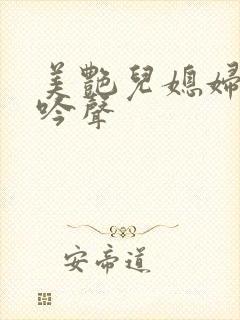 美艷兒媳婦
吟聲
安帝道